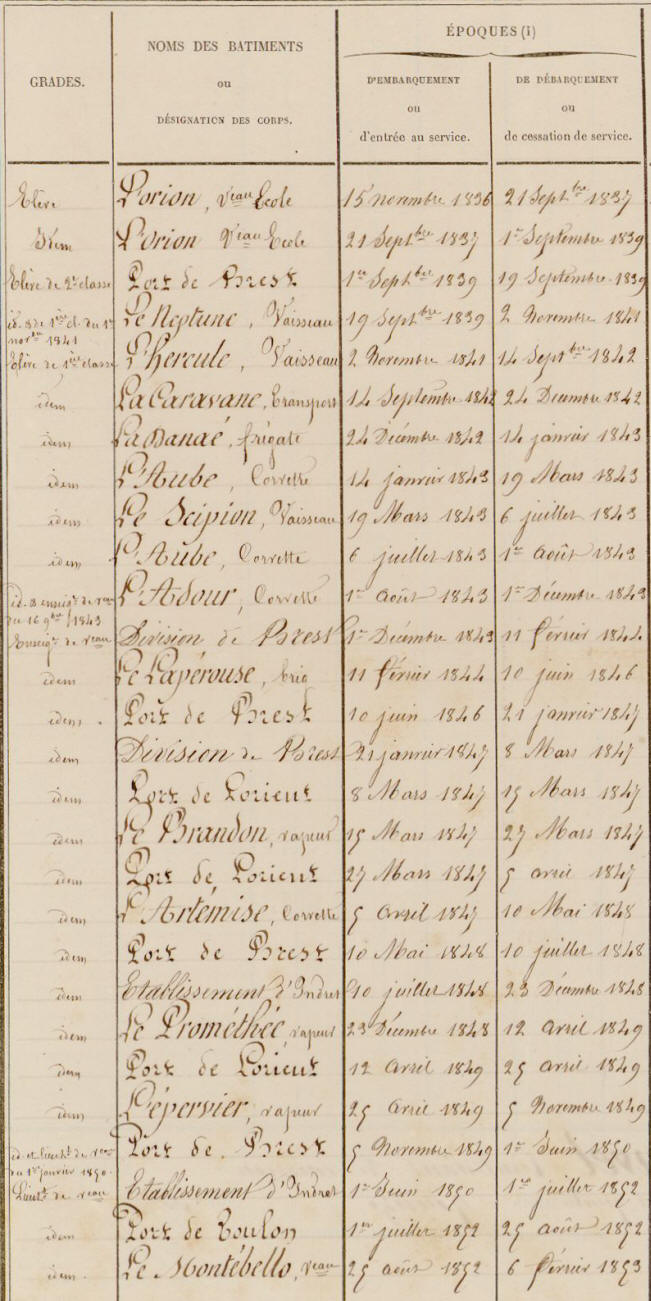 GRADES. NOMS DES BATIMENTS ou DÉSIGNATION DES CORPS. ÉPOQUES (1)
D'EMBARQUEMENT ou d'entrée au service. DE DÉBARQUEMENT ou de cessation de service.
Elève L'orion, Veau Ecole 15 novembre 1836 21 Septbre 1837
Idem L'orion Veau Ecole 21 Septbre 1837 1er Septembre 1839
Elève de 2e classe Port de Brest 1er Septbre 1839 19 Septembre 1839
id. & de 1ère cl. du 1er novbre 1841 Le Neptune, Vaisseau 19 Septbre 1839 2 Novembre 1841
Elève de 1ère classe L'hercule, Vaisseau 2 Novembre 1841 14 Septbre 1842
idem La Caravane, Transport 14 Septembre 1842 24 Décembre 1842
idem La Danaé, frégate 24 Décembre 1842 14 janvier 1843
idem L'Aube, Corvette 14 janvier 1843 19 Mars 1843
idem Le Scipion, Vaisseau 19 Mars 1843 6 juillet 1843
idem L'Aube, Corvette 6 juillet 1843 1er Août 1843
id. & enseigne de veau du 16 9bre 1843 L'Adour, Corvette 1er Août 1843 1er Décembre 1843
Enseigne de veau Division de Brest 1er Décembre 1843 11 février 1844
idem Le Lapérouse, brig 11 février 1844 10 juin 1846
idem. Port de Brest 10 juin 1846 21 janvier 1847
idem Division de Brest 21 janvier 1847 8 Mars 1847
idem Port de Lorient 8 Mars 1847 15 Mars 1847
idem Le Brandon, vapeur 15 Mars 1847 27 Mars 1847
idem Port de Lorient 27 Mars 1847 5 avril 1847
idem L'Artémise, Corvette 5 Avril 1847 10 Mai 1848
idem Port de Brest 10 Mai 1848 10 juillet 1848
idem Etablissement d'Indret 10 juillet 1848 23 Décembre 1848
idem Le Prométhée, vapeur 23 Décembre 1848 12 avril 1849
idem Port de Lorient 12 avril 1849 25 avril 1849
idem L'épervier, vapeur 25 avril 1849 5 Novembre 1849
id. et lieutt de veau du 1er janvier 1850. Port de Brest 5 Novembre 1849 1er Juin 1850
Lieutt de veau Etablissement d'Indret 1er Juin 1850 1er juillet 1852
idem Port de Toulon 1er juillet 1852 25 août 1852
idem. Le Montébello, veau 25 août 1852 6 février 1853